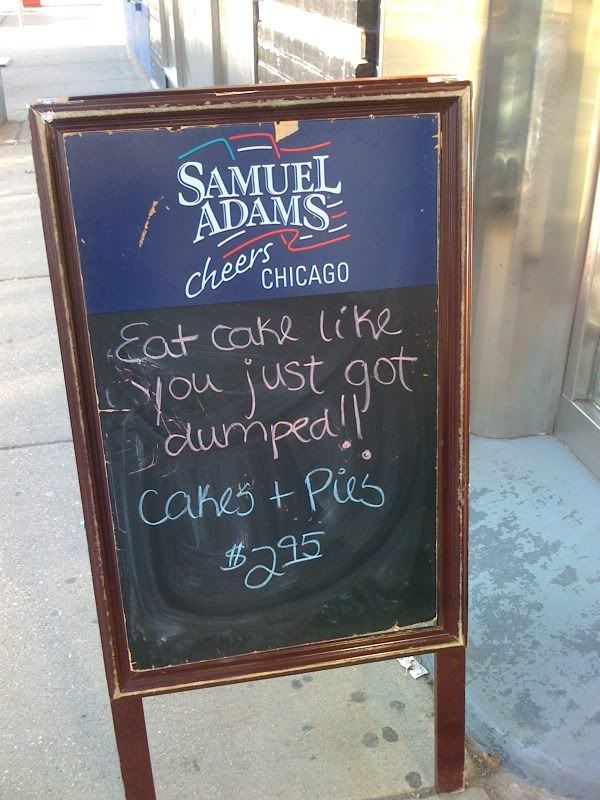 SAMUEL
ADAMS
cheers CHICAGO
Eat cake like
you just got
dumped!!
Cakes + Pies
$2.95